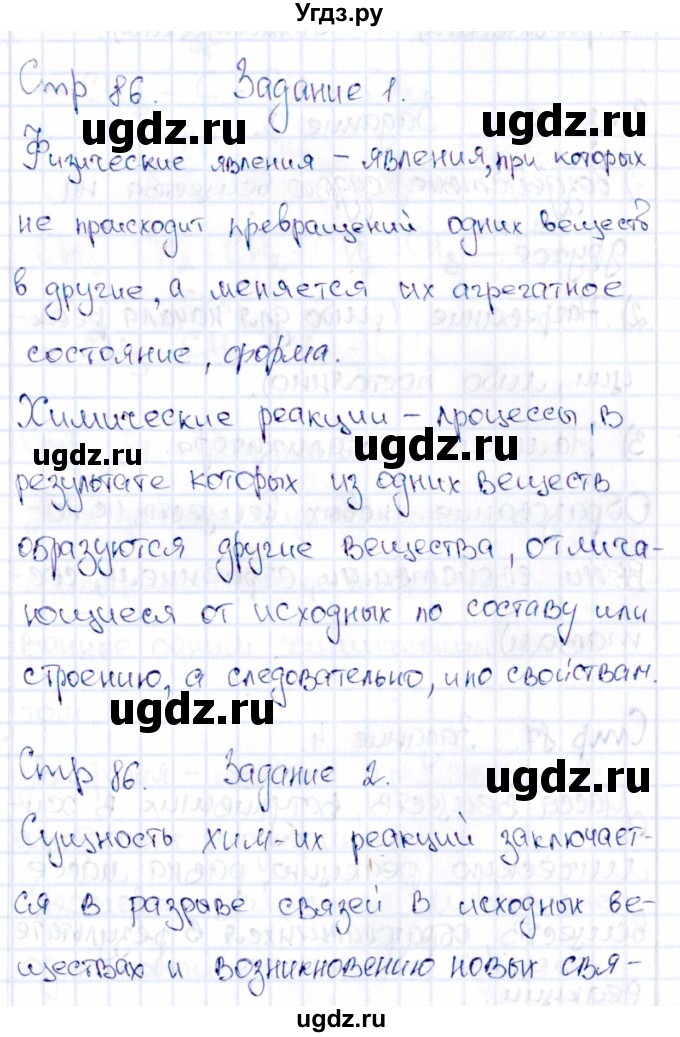 Угдз.ру
Стр 86. Задание 1.
Физические явления – явления, при которых
не происходит превращений одних веществ
в другие, а меняется их агрегатное
состояние, форма.
Химические реакции – процессы, в
результате которых из одних веществ
образуются другие вещества, отлича-
ющиеся от исходных по составу или
строению, а следовательно, и по свойствам.
Стр 86. Задание 2.
Сущность хим-их реакций заключает-
ся в разрыве связей в исходных ве-
ществах и возникновению новых свя-
ugdz.ru
ugdz.ru
ugdz.ru
ugdz.ru
ugdz.ru
ugdz.ru
ugdz.ru